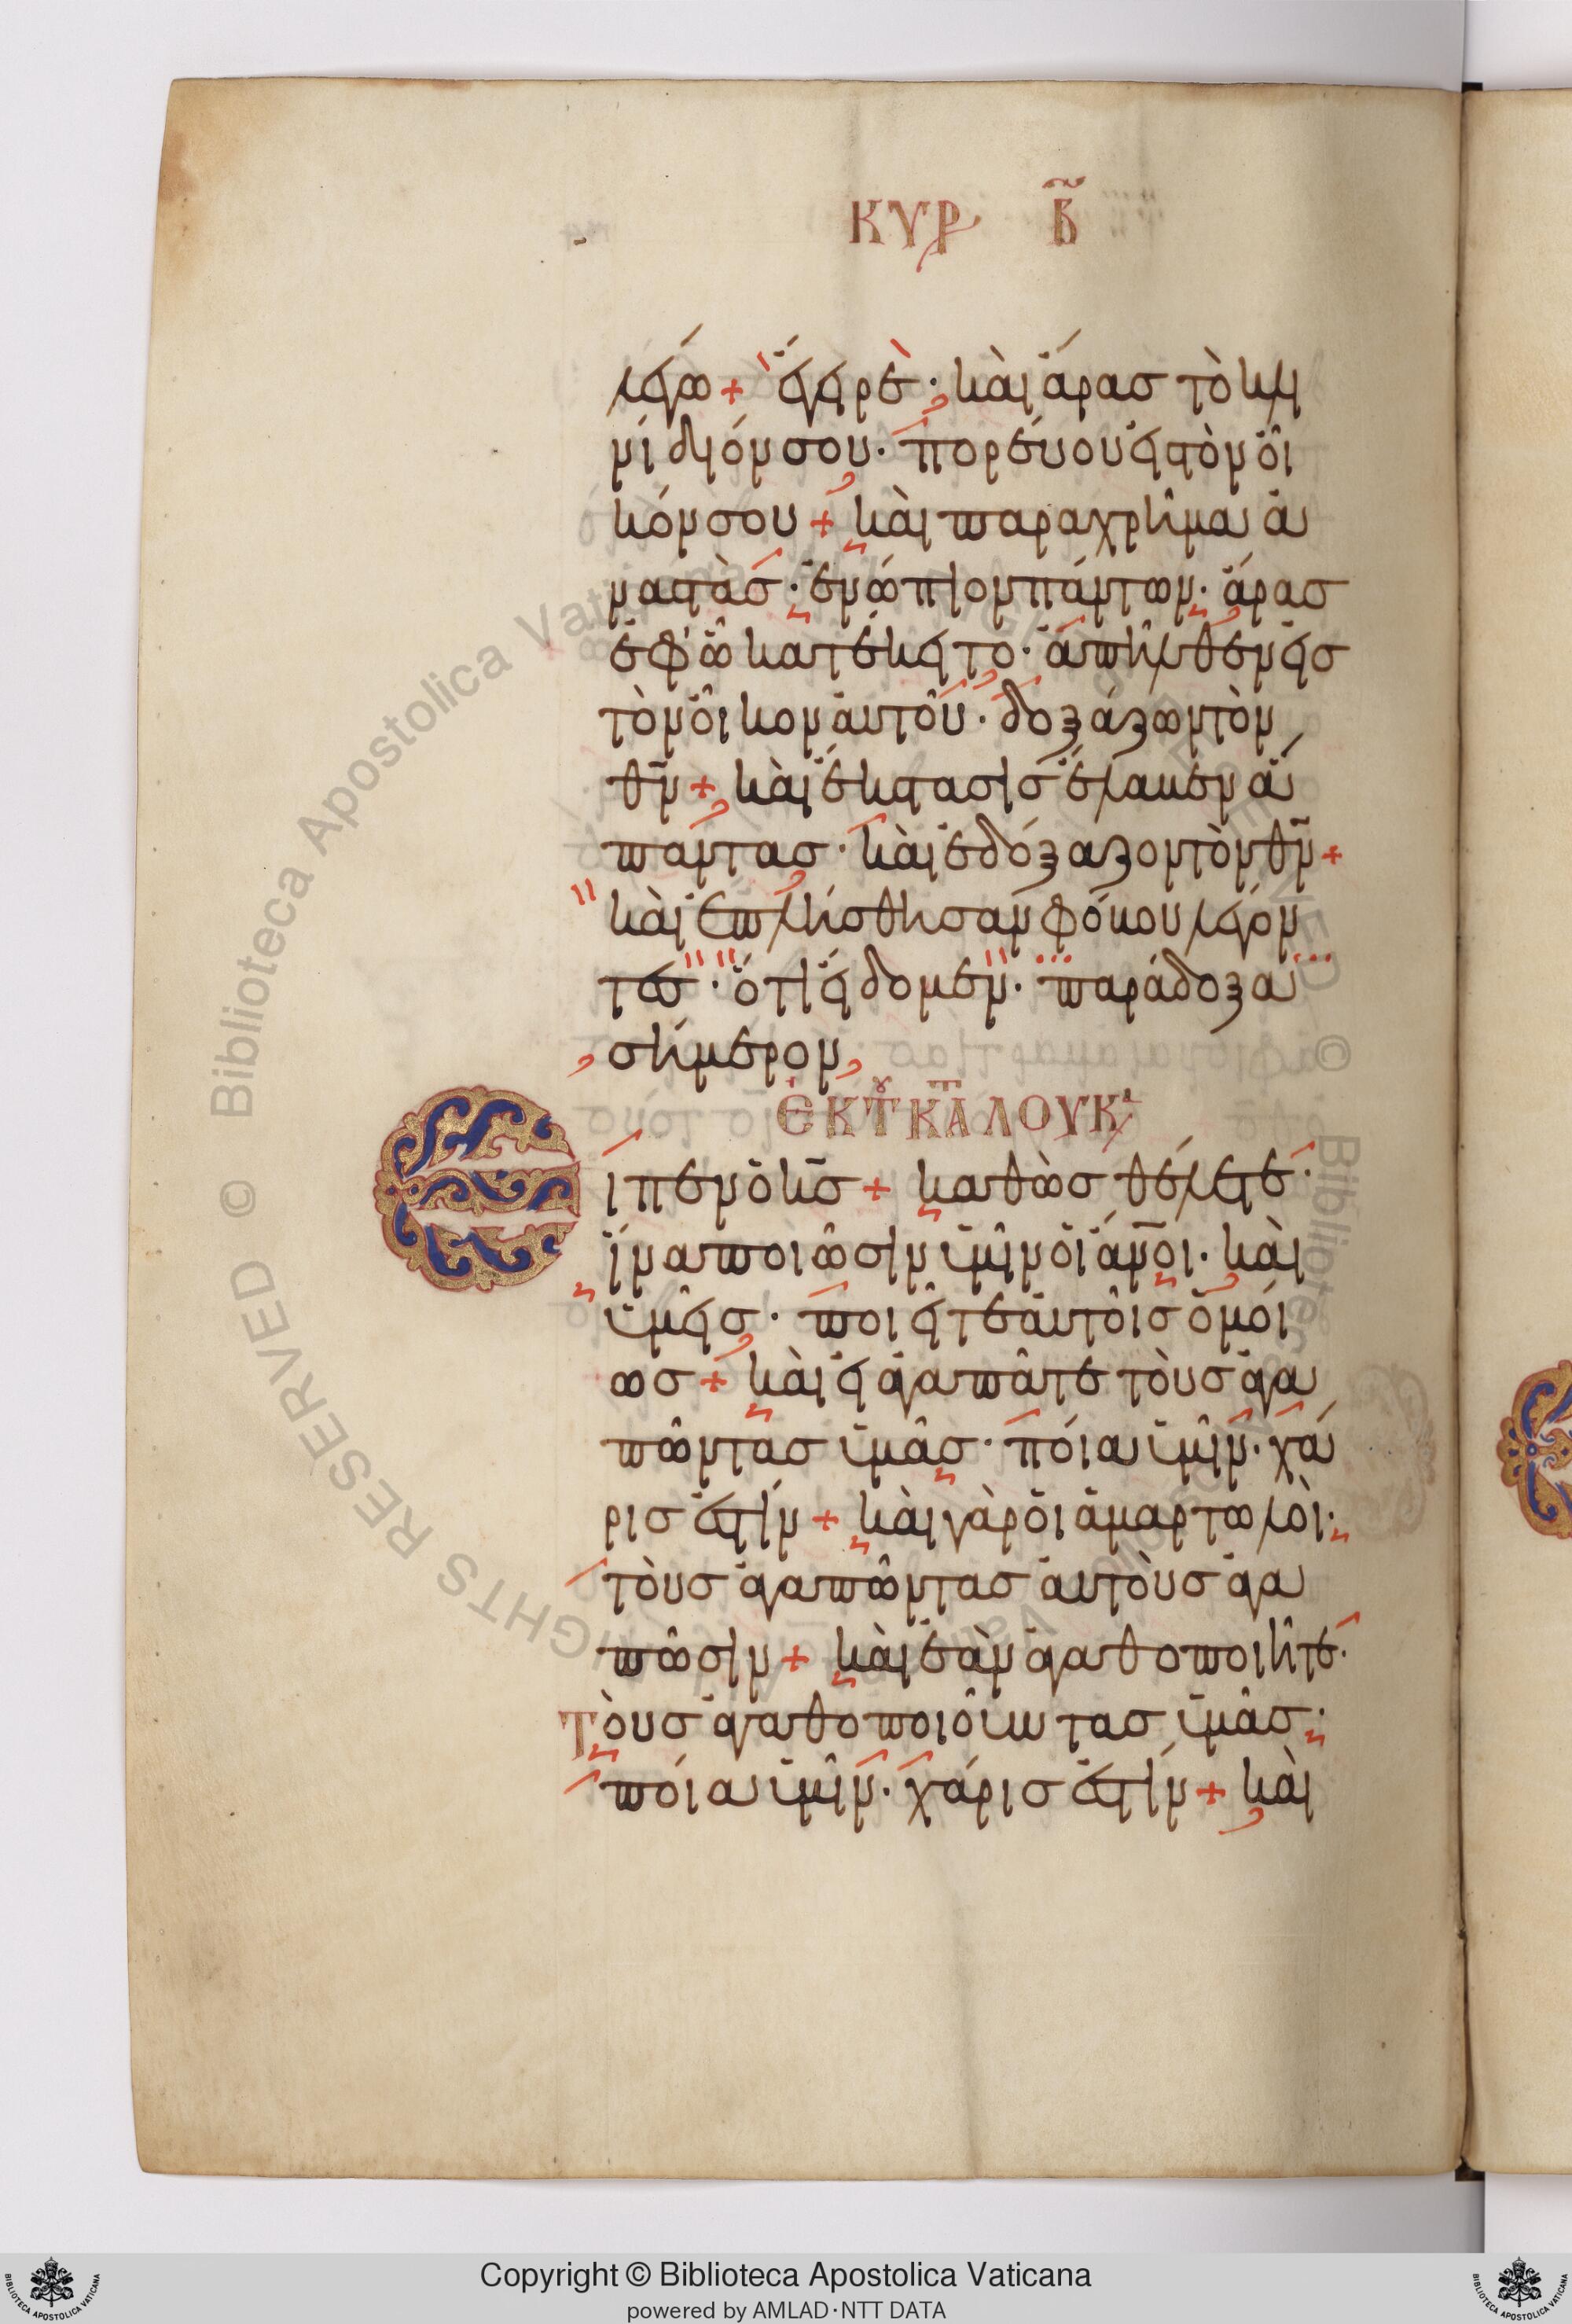 ΚΥΡ Β
λέγω + ἔγειρε · καὶ ἄρας τὸ κλι
νίδιόν σου · πορεύου εἰς τὸν οἶ
κόν σου + καὶ παραχρῆμα ἀ
ναστὰς · ἐνώπιον πάντων · ἄρας
ἐφ' ᾧ κατέκειτο · ἀπῆλθεν εἰς
τὸν οἶκον αὐτοῦ · δοξάζων τὸν
θν + καὶ ἔκστασις ἔλαβεν ἅ
παντας · καὶ ἐδόξαζον τὸν θν +
καὶ ἐπλήσθησαν φόβου λέγον
τες · ὅτι εἴδομεν · παράδοξα
σήμερον
ἐκ τοῦ κατὰ Λουκ
Εἶπεν ὁ κς + καθὼς θέλετε ·
ἵνα ποιῶσιν ὑμῖν οἱ ἄνοι · καὶ
ὑμεῖς · ποιεῖτε αὐτοῖς ὁμοί
ως + καὶ εἰ ἀγαπᾶτε τοὺς ἀγα
πῶντας ὑμᾶς · ποία ὑμῖν · χά
ρις ἐστίν + καὶ γὰρ οἱ ἁμαρτωλοὶ ·
τοὺς ἀγαπῶντας αὐτοὺς ἀγα
πῶσιν + καὶ ἐὰν ἀγαθοποιῆτε ·
τοὺς ἀγαθοποιοῦντας ὑμᾶς ·
ποία ὑμῖν · χάρις ἐστίν + καὶ
© Biblioteca Apostolica Vaticana
RIGHTS RESERVED
Copyright © Biblioteca Apostolica Vaticana
powered by AMLAD·NTT DATA
BIBLIOTECA APOSTOLICA VATICANA
BIBLIOTECA APOSTOLICA VATICANA